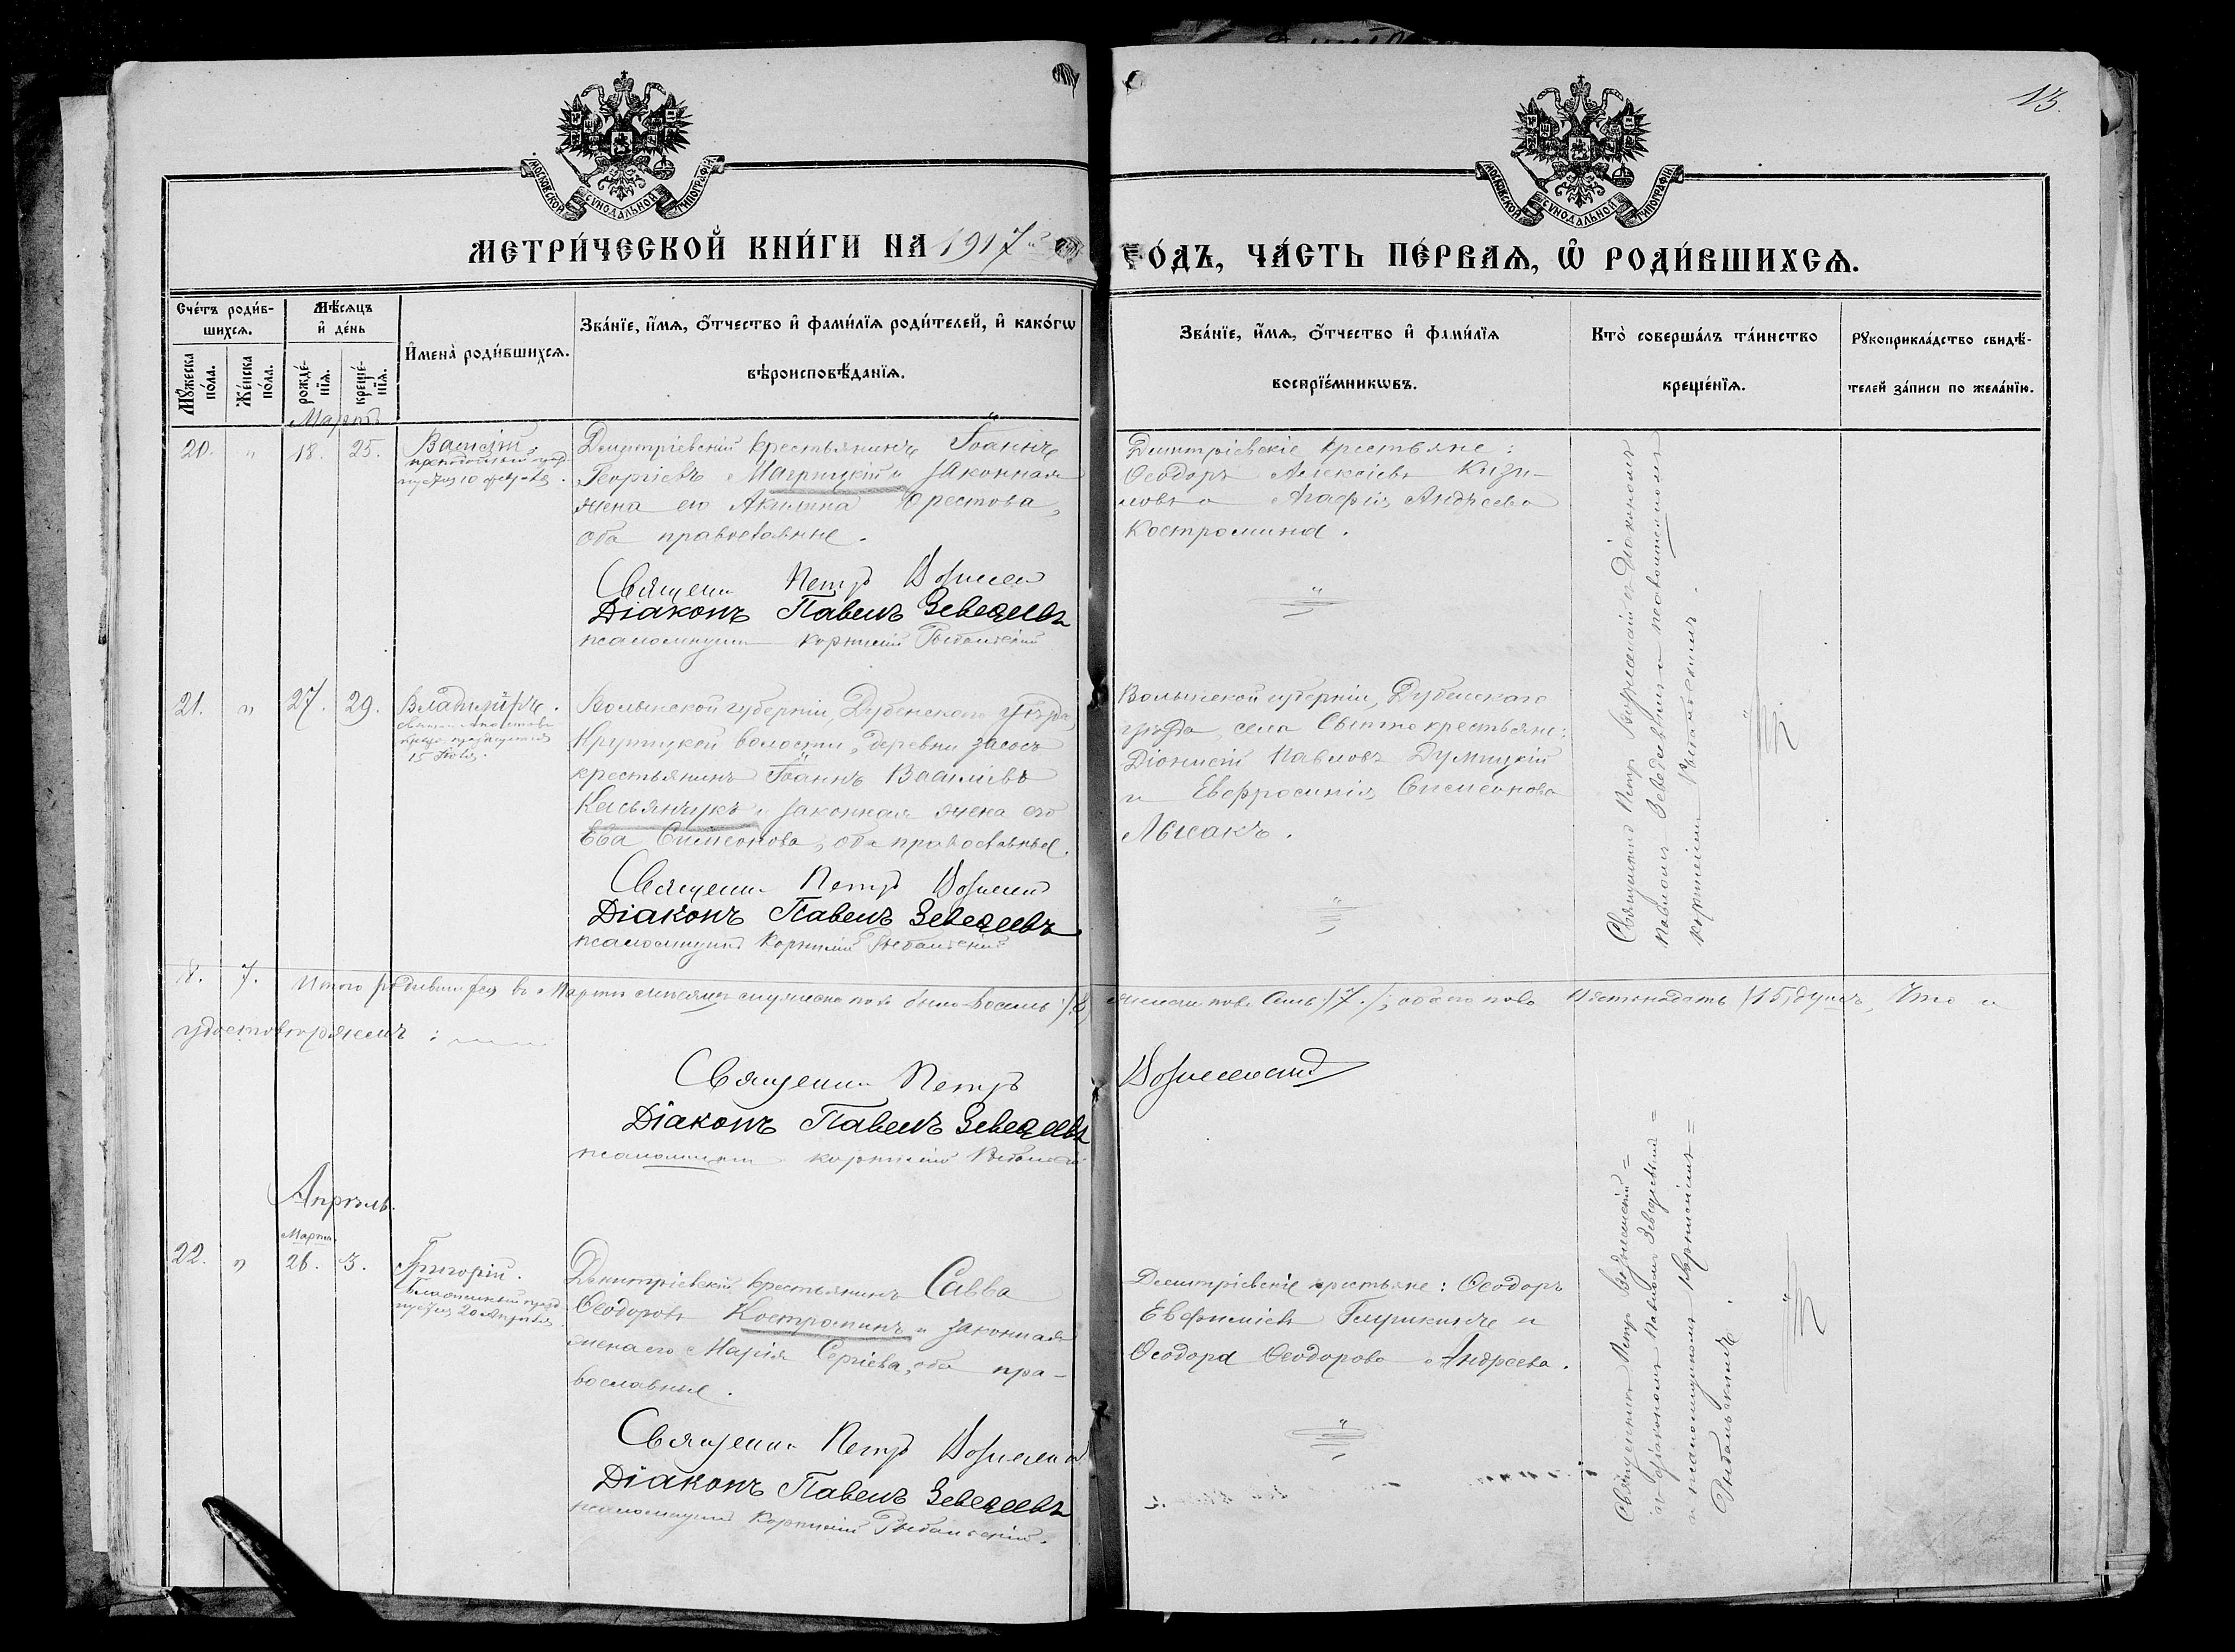 13.
МОСКОВСКОЙ СУНОДАЛЬНОЙ ТИПОГРАФІИ
МОСКОВСКОЙ СУНОДАЛЬНОЙ ТИПОГРАФІИ
МЕТРИ́ЧЕСКОЙ КНИ́ГИ НА 1917
О́ДЪ, ЧА́СТЬ ПЕ́РВАѦ, Ѽ РОДИ́ВШИХСѦ.
Счéтъ роди́в-
шихсѧ.
Мꙋжеска
по́ла.
Же́нска
по́ла.
Мѣ́сѧцъ
и҆ де́нь
рожде́-
нїѧ.
креще́-
нїѧ.
И҆мена̀ роди́вшихсѧ.
Зва́нїе, и҆́мѧ, ѻ҆́тчество и҆ фами́лїѧ роди́телей, и҆ како́гѡ
вѣроисповѣ́данїѧ.
Зва́нїе, и҆́мѧ, ѻ҆́тчество и҆ фами́лїѧ
воспрїе́мникѡвъ.
Кто̀ соверша́лъ та́инство
креще́нїѧ.
Рꙋкоприкла́дство свидѣ́-
телей за́писи по жела́нїю.
Мартъ
20. " 18. 25. Василій.
Димитріевскій крестьянинъ Іоаннъ
Георгіевъ и законная
жена его Акилина Орестова,
оба православные.
Священ. Петръ
Діаконъ Павелъ Зеведеевъ
псаломщикъ Корнилій Рыбальскій
Димитріевскіе крестьяне:
Ѳеодоръ Алексіевъ Кизи-
ловъ и Агафія Андреева
Костромина.
Священникъ Петръ съ Діакономъ
Павломъ Зеведеевымъ и псаломщикомъ
Корниліемъ Рыбальскимъ.
21. " 27. 29. Владиміръ.
15 Іюля.
Волынской губерніи, Дубенскаго уѣзда,
волости, деревни
крестьянинъ Іоаннъ Васильевъ
Касьянчукъ и законная жена его
Ева Симеонова, оба православные.
Священ. Петръ
Діаконъ Павелъ Зеведеевъ
псаломщикъ Корнилій Рыбальскій
Волынской губерніи, Дубенскаго
уѣзда, села крестьяне:
Діонисій Павловъ
и Евфросинія Симеонова
Лысакъ.
8. 7. Итого родившихся въ Мартѣ мѣсяцѣ мужеска пола было восемь /8/
женска пола семь /7/, обоего пола пятнадцать /15/ душъ, что и
удостовѣряемъ:
Священ. Петръ
Діаконъ Павелъ Зеведеевъ
псаломщикъ Корнилій Рыбальскій
Апрѣль.
Марта.
22. " 26. 3. Григорій.
20 Апрѣля
Димитріевскій крестьянинъ Савва
Ѳеодоровъ Костроминъ и законная
жена его Марія Сергіева, оба пра-
вославные.
Священ. Петръ
Діаконъ Павелъ Зеведеевъ
псаломщикъ Корнилій Рыбальскій.
Димитріевскіе крестьяне: Ѳеодоръ
Евфиміевъ и
Ѳеодора Ѳеодорова Андреева.
Священникъ Петръ
съ діакономъ Павломъ Зеведеевымъ
и псаломщикомъ Корниліемъ
Рыбальскимъ.